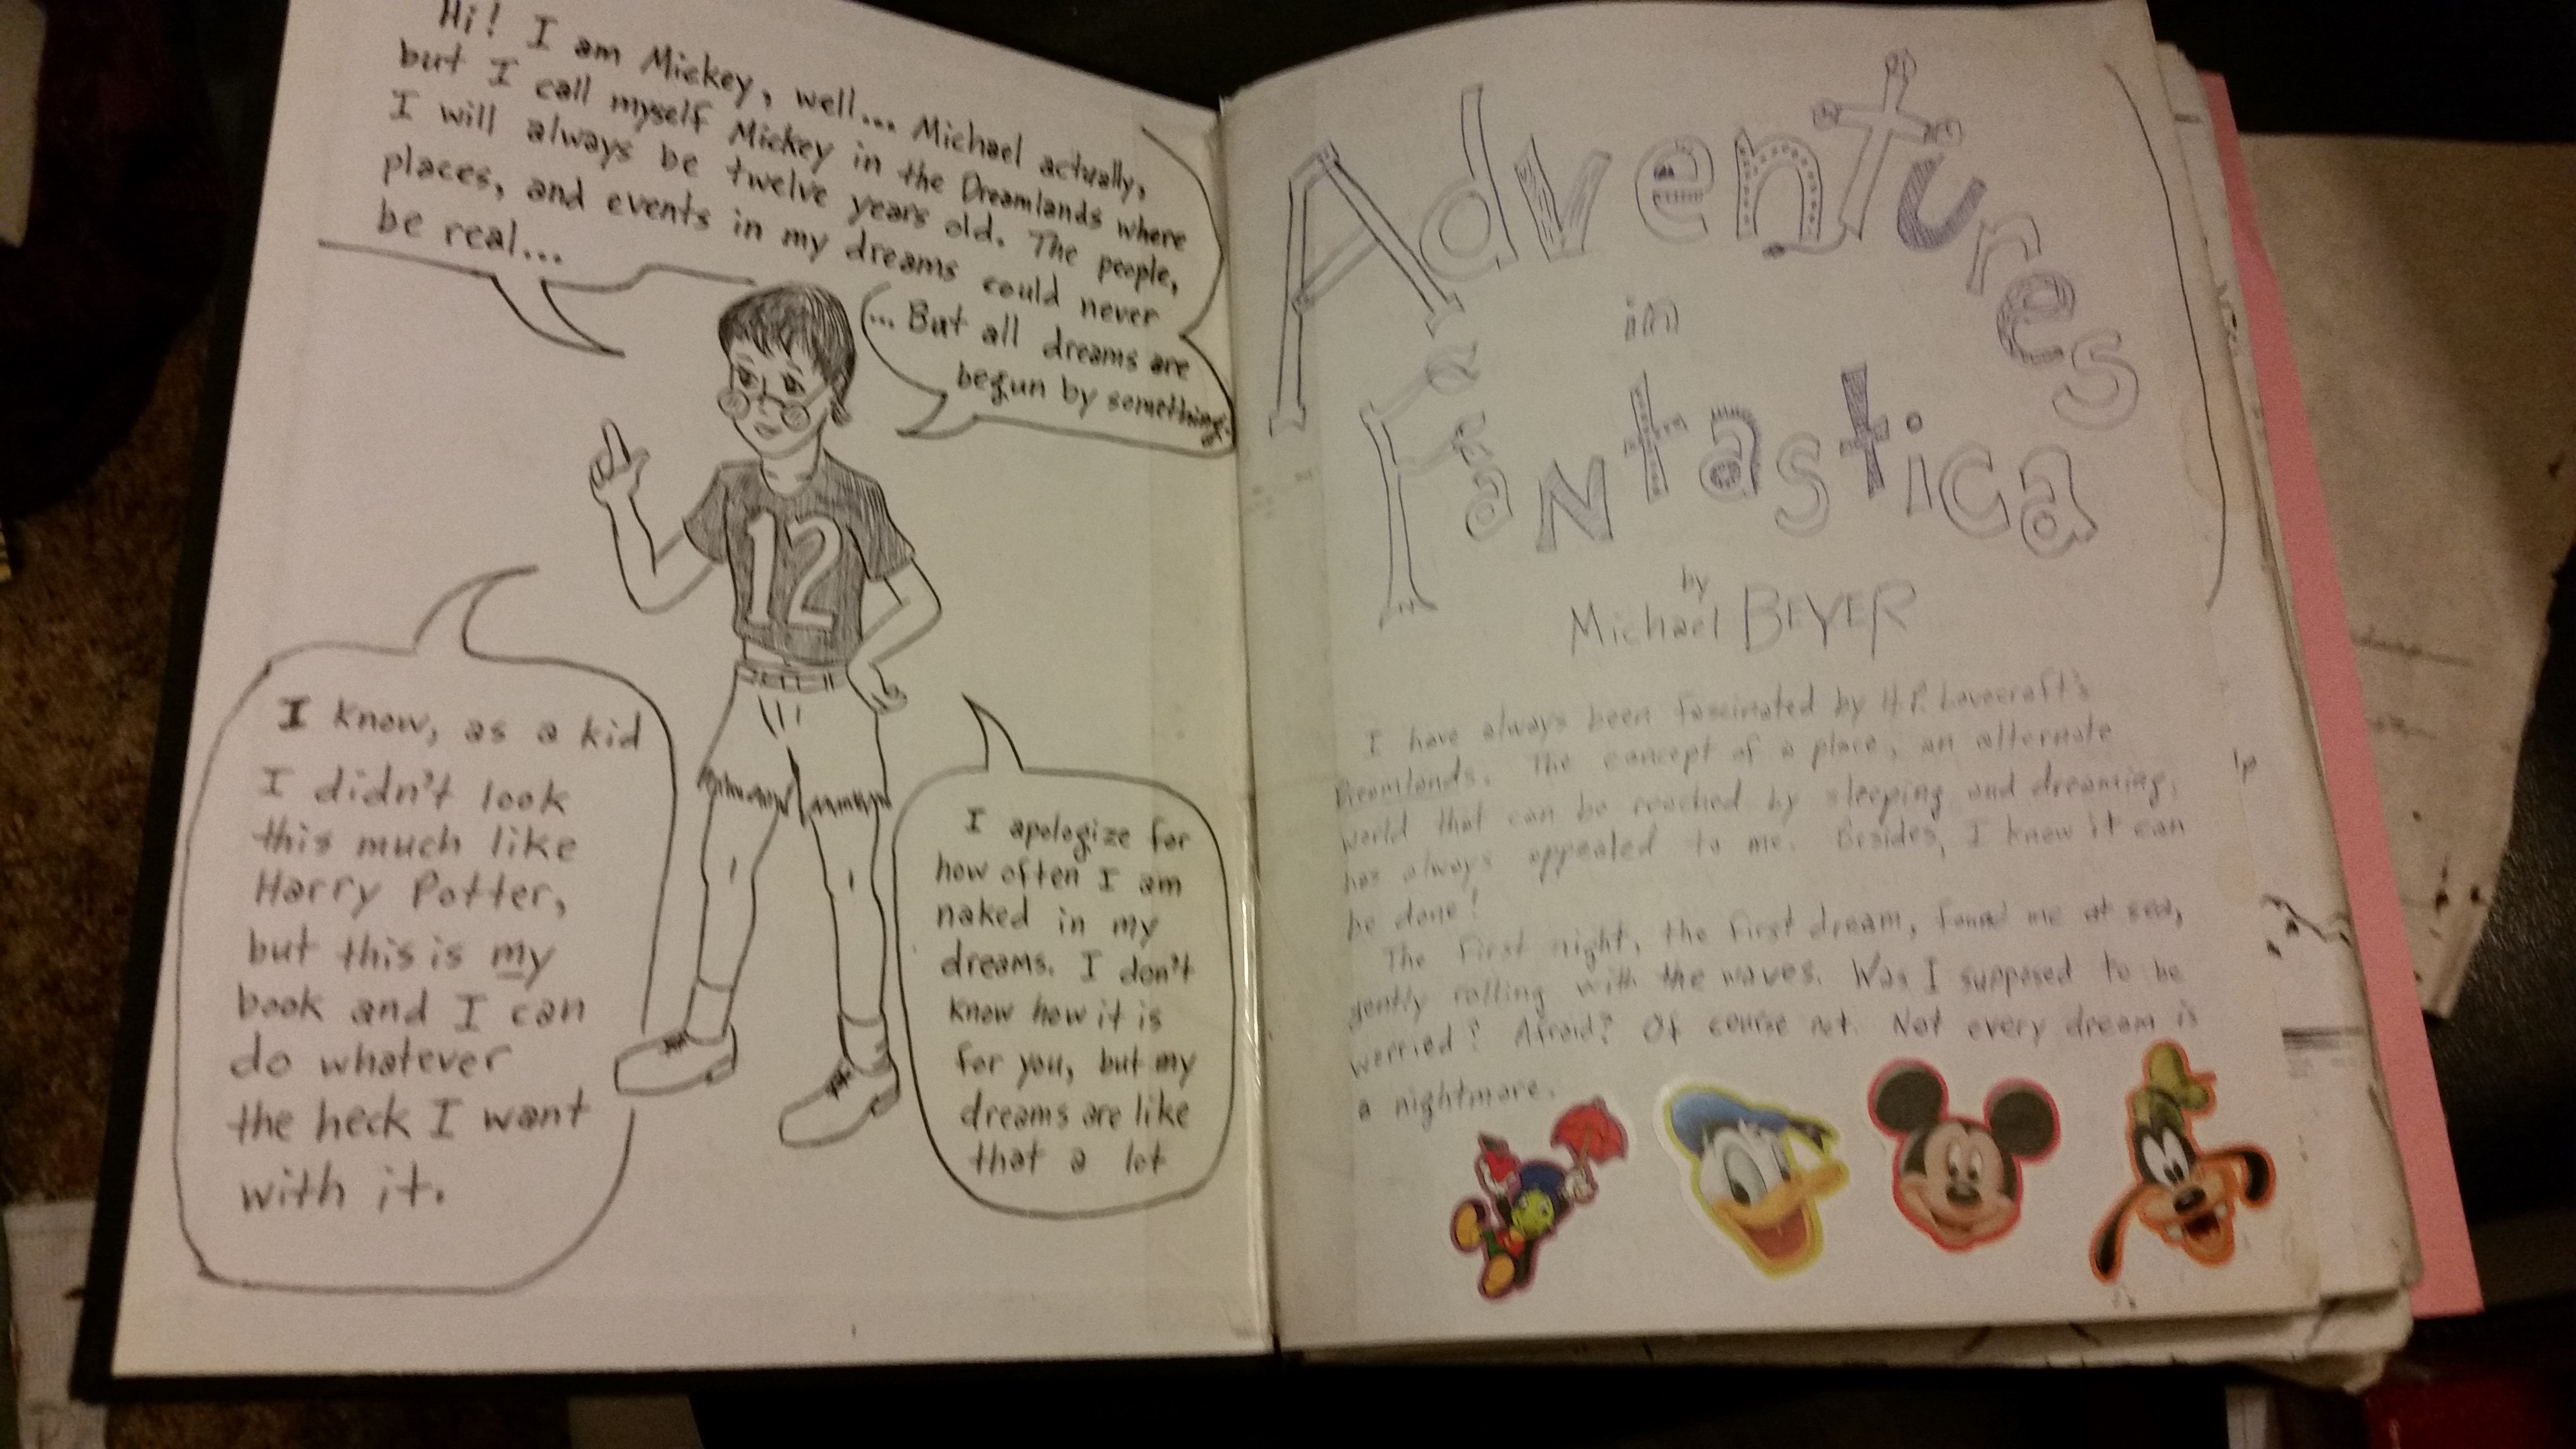 Hi! I am Mickey, well... Michael actually,
but I call myself Mickey in the Dreamlands where
I will always be twelve years old. The people,
places, and events in my dreams could never
be real...
... But all dreams are
begun by something.
12
I know, as a kid
I didn't look
this much like
Harry Potter,
but this is my
book and I can
do whatever
the heck I want
with it.
I apologize for
how often I am
naked in my
dreams. I don't
know how it is
for you, but my
dreams are like
that a lot
Adventures
in
Fantastica
by
Michael BEYER
I have always been fascinated by H.P. Lovecraft's
Dreamlands. The concept of a place, an alternate
world that can be reached by sleeping and dreaming,
has always appealed to me. Besides, I know it can
be done!
The first night, the first dream, found me at sea,
gently rolling with the waves. Was I supposed to be
worried? Afraid? Of course not. Not every dream is
a nightmare.